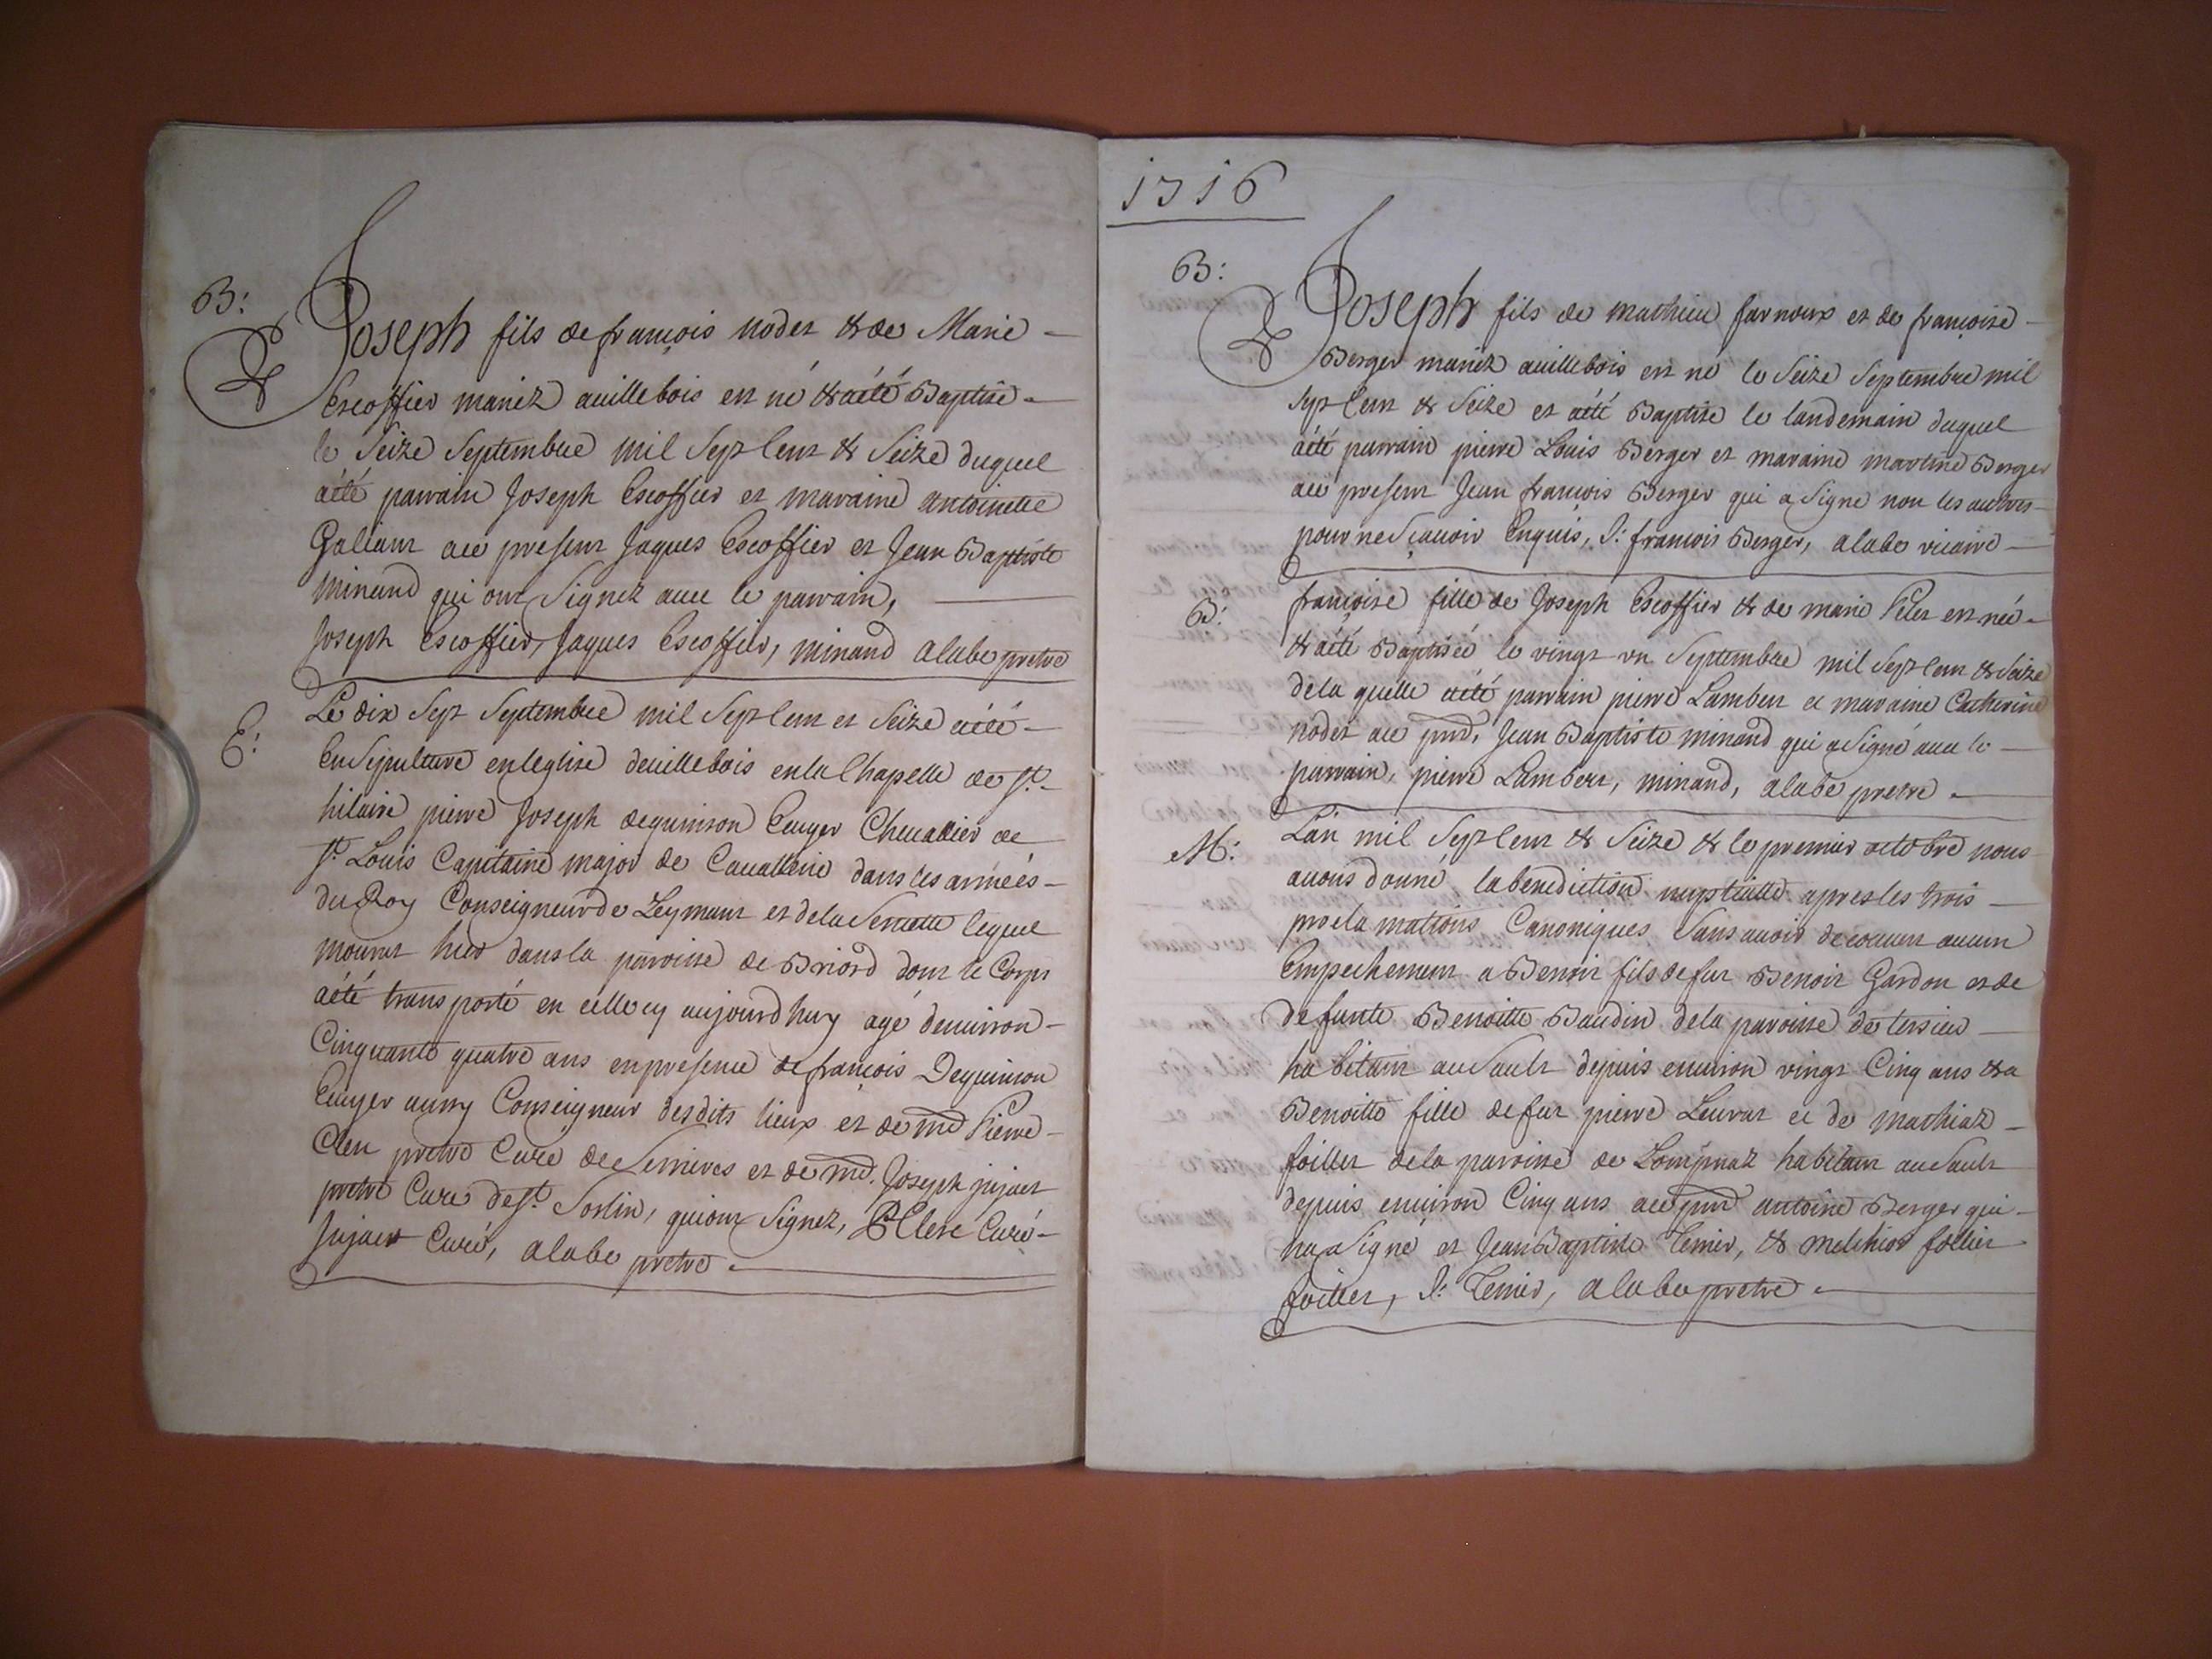 B:
Joseph fils de françois nodet & de Marie
Escoffier mariez auillebois est né & aété Baptisé
le Seize Septembre mil Sept Cent & Seize duquel
aété parrain Joseph Escoffier et maraine antoinette
Galiant ace present Jaques Escoffier et Jean Baptiste
minand qui ont Signez auec le parrain,
Joseph Escoffier, Jaques Escoffier, minand alabe pretre
E:
Le dix Sept Septembre mil Sept Cent et Seize aété
Ensipulturé enleglise deuillebois enla Chapelle de St.
hilaire pierre Joseph dequinson Ecuyer Cheuallier de
St. Louis Capitaine major de Cauallerie dans les armées
du Roy Conseigneur de Leyment et dela Seruette lequel
mourut hier dans la paroisse de Briord dont le Corps
aété transporté en celle cy aujourdhuy agé denuiron
Cinquante quatre ans enpresence de françois Dequinson
Ecuyer aussy Conseigneur desdits lieux et de mre Pierre
Clerc pretre Curé de Serrieres et de mre. Joseph jujaet
pretre Curé de St. Sorlin, quiont Signez, P Clerc Curé
jujaet Curé, alabe pretre
1716
B:
Joseph fils de mathieu farnoux et de françoise
Berger mariez auillebois est né le Seize Septembre mil
Sept Cent & Seize et aété Baptisé le landemain duquel
aété parrain pierre Louis Berger et maraine martine Berger
ace present Jean françois Berger qui a Signé non les autres
pour ne Sçauoir Enquis, J: françois Berger, alabe vicaire
B:
françoise fille de Joseph Escoffier & de marie Peter est née
& aété Baptisée le vingt vn Septembre mil Sept Cent & Seize
dela quelle aété parrain pierre Lambert et maraine Catherine
nodet ace pnt, Jean Baptiste minand qui a Signé auec le
parrain, pierre Lambert, minand, alabe pretre
M:
Lan mil Sept Cent & Seize & le premier octobre nous
auons donné la benediction nuptialle apres les trois
proclamations Canoniques Sans auoir decouuert aucun
Empechement a Benoit fils de fut Benoit Gardon et de
defunte Benoitte Baudin dela paroisse de tersieu
habitant auSault depuis enuiron vingt Cinq ans & a
Benoitte fille de fut pierre Leurat et de mathiaz
foillet dela paroisse de Lompnaz habitant au Sault
depuis enuiron Cinq ans ace pnt antoine Berger qui
na Signé et Jean Baptiste Tenier, & melchior foillet
foillet, J: Tenier, alabe pretre